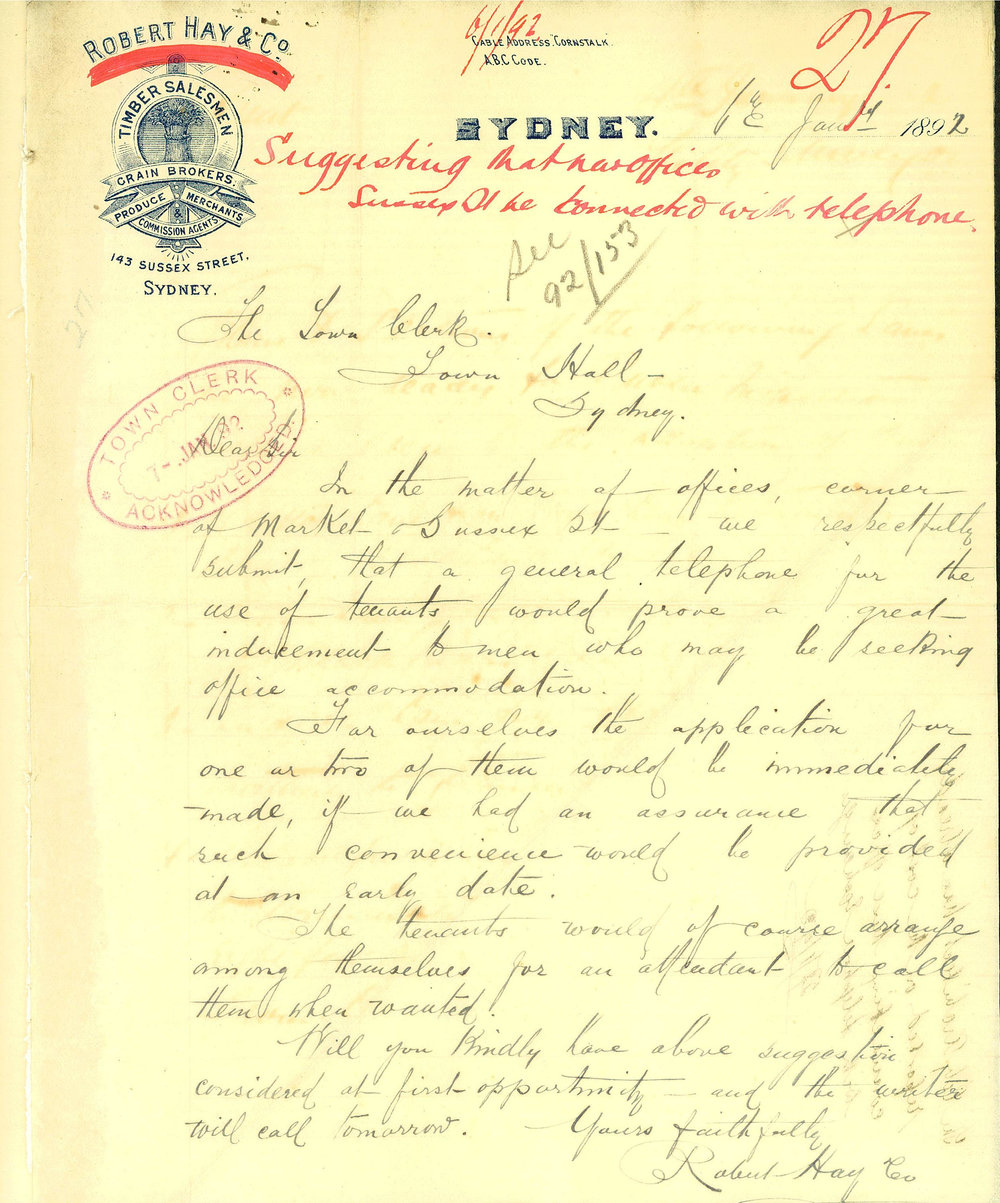 ROBERT HAY & Co
TIMBER SALESMEN
GRAIN BROKERS.
PRODUCE & MERCHANTS
COMMISSION AGENTS
143 SUSSEX STREET.
SYDNEY.
6/1/92
CABLE ADDRESS "CORNSTALK.
A.B.C CODE.
27
SYDNEY. 6th Jany 1892
Suggesting that new offices
Sussex St be connected with telephone.
See
92/153
27
The Town Clerk.
Town Hall –
Sydney.
TOWN CLERK
7 – JAN 92
ACKNOWLEDGED.
Dear Sir
In the matter of offices, corner
of Market & Sussex St – we respectfully
submit, that a general telephone for the
use of tenants, would prove a great
inducement to men who may be seeking
office accommodation.
For ourselves the application for
one or two of them would be immediately
made, if we had an assurance that
such convenience would be provided
at an early date.
The tenants would of course arrange
among themselves for an attendant to call
them when wanted.
Will you kindly have above suggestion
considered at first opportunity – and the writer
will call tomorrow. Yours faithfully
Robert Hay & Co